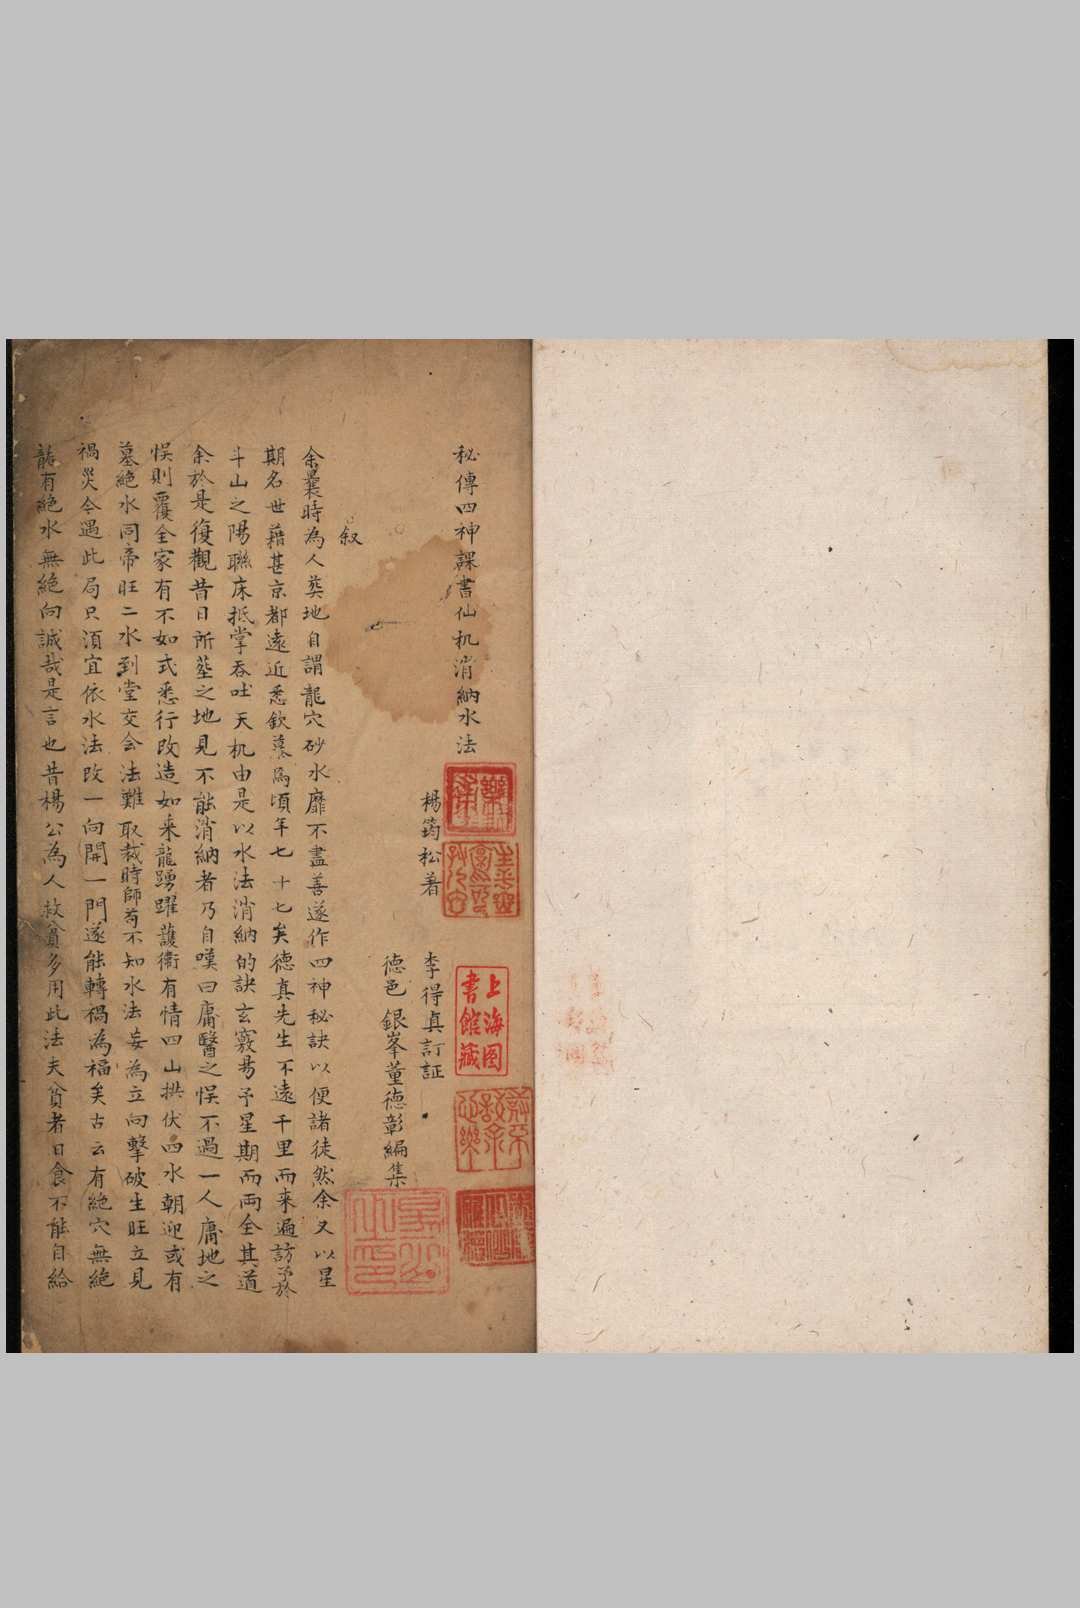 秘傳四神課書仙机消納水法
楊筠松著
李得真訂証
德邑銀峯董德彰編集
叙
余曩時為人葬地自謂龍穴砂水靡不盡善遂作四神秘訣以便諸徒然余又以星
期名世藉甚京都遠近悉欽慕焉頃年七十七矣德真先生不遠千里而来遍訪予於
斗山之陽聯床抵掌吞吐天机由是以水法消納的訣玄竅易予星期而両全其道
余於是復觀昔日所塟之地見不能消納者乃自嘆曰庸醫之悞不過一人庸地之
悞則覆全家有不如式悉行改造如来龍踴躍護衛有情四山拱伏四水朝迎或有
墓絕水同帝旺二水到堂交会法難取裁時師苟不知水法妄為立向擊破生旺立見
禍災今遇此局只須宜依水法改一向開一門遂能轉禍為福矣古云有絕穴無絕
龍有絕水無絕向誠哉是言也昔楊公為人救貧多用此法夫貧者日食不能自給
上海图
書館藏